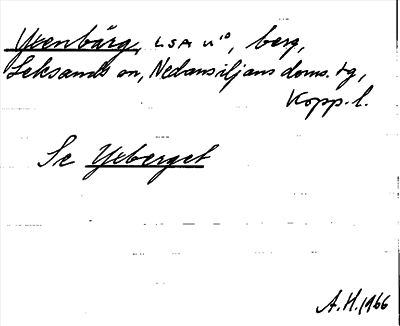 Yxenbärg, LSA u¹⁰, berg,
Leksands sn, Nedansiljans doms. tg,
Kopp. l.
Se Yxberget
A.H. 1966